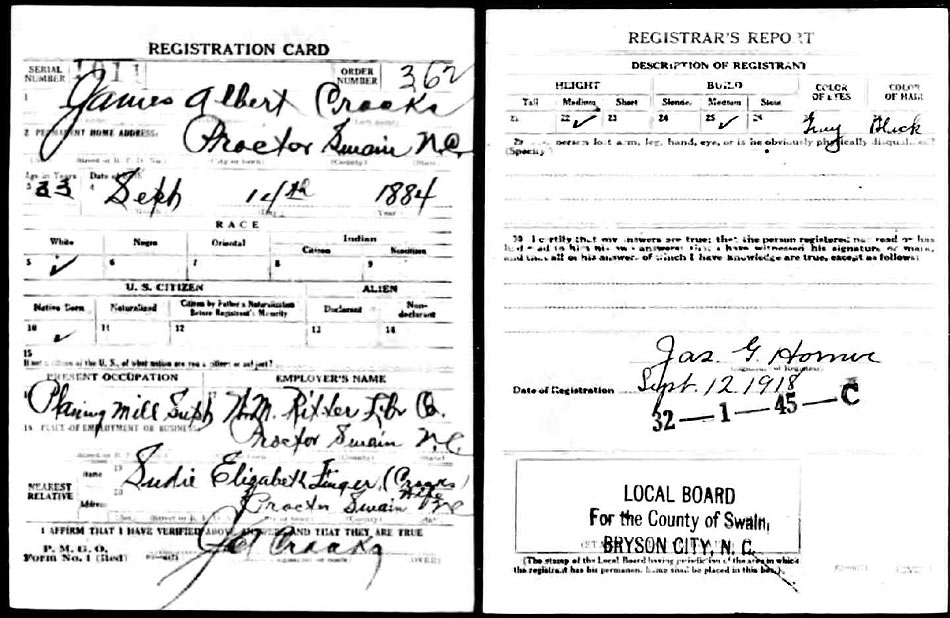 REGISTRATION CARD
SERIAL NUMBER
ORDER NUMBER 362
1 James Albert Crooks
2 PERMANENT HOME ADDRESS:
Proctor Swain N.C.
Age in Years
Date of
3 33 4 Seph 14th 1884
RACE
White Negro Oriental Indian
Citizen Noncitizen
5 ✓ 6 7 8 9
U. S. CITIZEN ALIEN
Native Born Naturalized Citizen by Father's Naturalization Before Registrant's Majority Declarant Non-declarant
10 ✓ 11 12 13 14
15
If not a citizen of the U. S., of what nation are you a citizen or subject?
PRESENT OCCUPATION EMPLOYER'S NAME
Planing Mill Supt W.M. Ritter Lbr Co.
PLACE OF EMPLOYMENT OR BUSINESS
Proctor Swain N.C.
NEAREST RELATIVE
Name 19 Sudie Elizabeth Finger (Crooks)
Wife
Address 20 Proctor Swain N.C.
I AFFIRM THAT I HAVE VERIFIED ABOVE ANSWERS AND THAT THEY ARE TRUE
P. M. G. O.
Form No. 1 (Red)
J A Crooks
(OVER)
REGISTRAR'S REPORT
DESCRIPTION OF REGISTRANT
HEIGHT BUILD COLOR OF EYES COLOR OF HAIR
Tall Medium Short Slender Medium Stout
21 22 ✓ 23 24 25 ✓ 26 Gray Black
29 person lost arm, leg, hand, eye, or is he obviously physically disqualified?
(Specify)
30 I certify that my answers are true; that the person registered has read or has
had read to him his own answers; that I have witnessed his signature or mark,
and that all of his answers of which I have knowledge are true, except as follows:
Jas. G. Horner
Date of Registration Sept. 12 1918
32—1—45—C
LOCAL BOARD
For the County of Swain,
BRYSON CITY, N. C.
(The stamp of the Local Board having jurisdiction of the area in which
the registrant has his permanent home shall be placed in this box.)